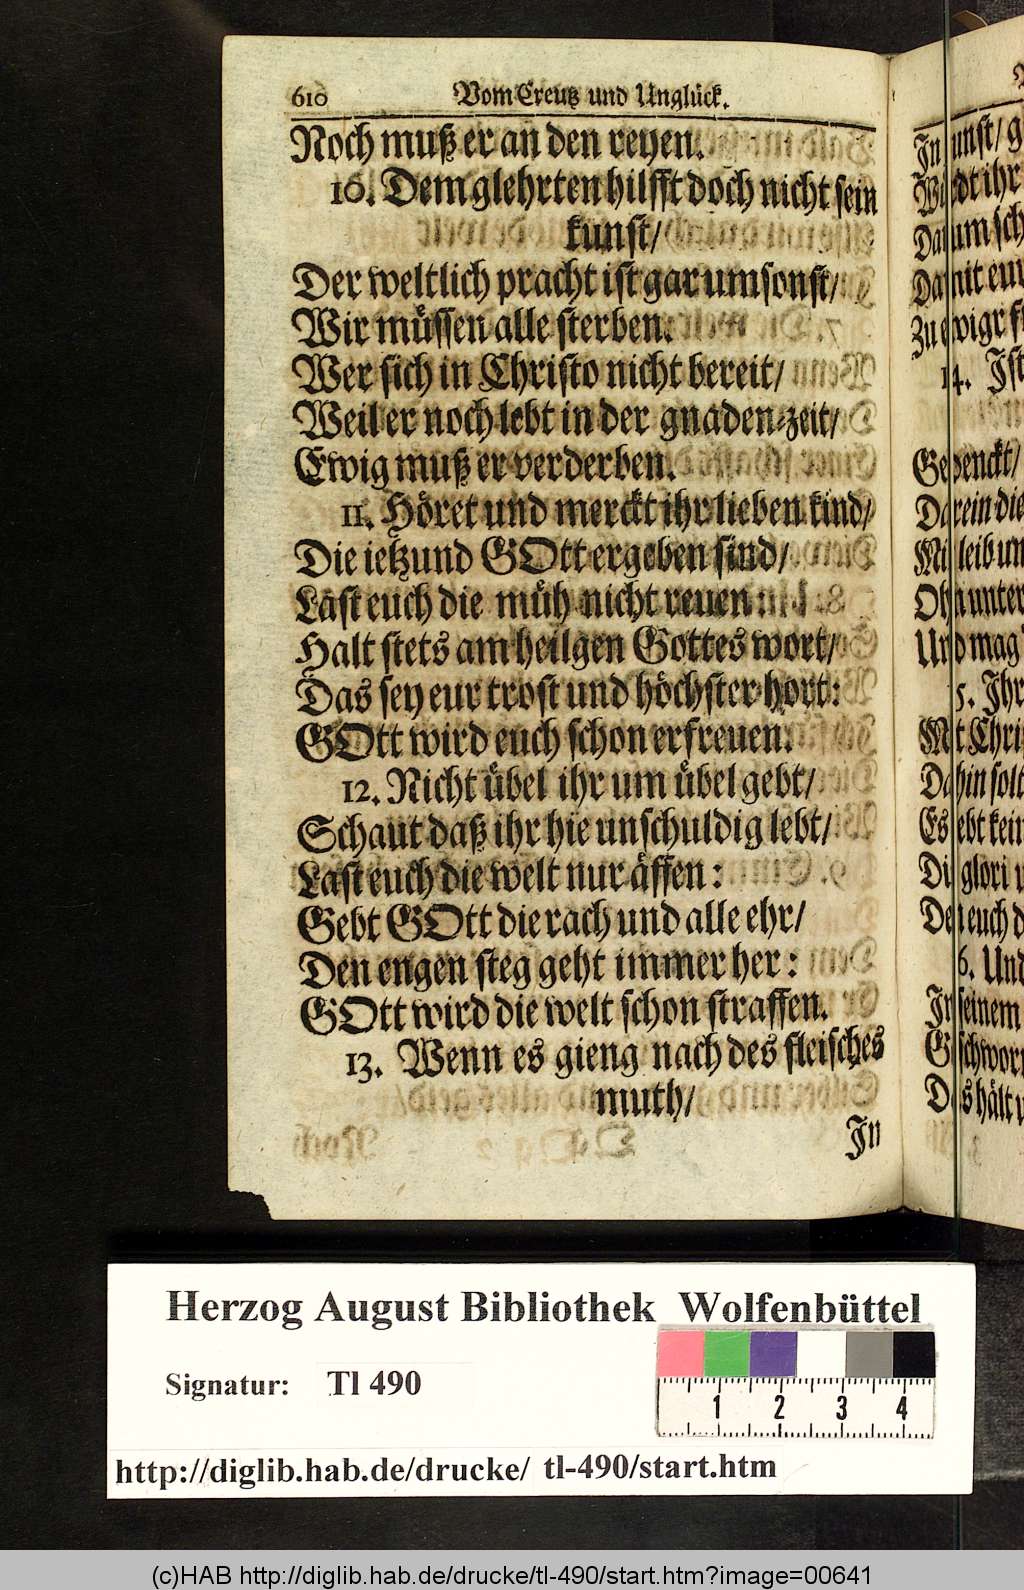 610 Vom Creutz und Unglück.
Noch muß er an den reyen.
10. Dem glehrten hilfft doch nicht sein
kunst/
Der weltlich pracht ist gar umsonst/
Wir müssen alle sterben.
Wer sich in Christo nicht bereit/
Weil er noch lebt in der gnaden-zeit/
Ewig muß er verderben.
11. Höret und merckt ihr lieben kind/
Die ietzund GOtt ergeben sind/
Last euch die müh nicht reuen:
Halt stets am heilgen Gottes wort/
Das sey eur trost und höchster hort:
GOtt wird euch schon erfreuen.
12. Nicht übel ihr um übel gebt/
Schaut daß ihr hie unschuldig lebt/
Last euch die welt nur äffen:
Gebt GOtt die rach und alle ehr/
Den engen steg geht immer her:
GOtt wird die welt schon straffen.
13. Wenn es gieng nach des fleisches
muth/
In
Herzog August Bibliothek Wolfenbüttel
Signatur: Tl 490
1 2 3 4
http://diglib.hab.de/drucke/ tl-490/start.htm
(c)HAB http://diglib.hab.de/drucke/tl-490/start.htm?image=00641